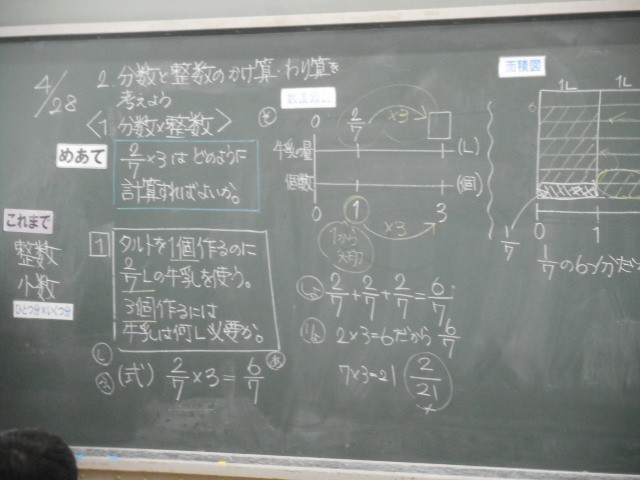 4/28
2. 分数と整数のかけ算・わり算を
考えよう
<1. 分数×整数>
めあて
2/7×3はどのように
計算すればよいか。
これまで
整数
小数
ひとつ分×いくつ分
1
タルトを1個作るのに
2/7Lの牛乳を使う。
3個作るには
牛乳は何L必要か。
(式) 2/7×3=6/7
0 2/7 ×3 □
牛乳の量 (L)
個数 (個)
0 1 ×3 3
2/7+2/7+2/7=6/7
2×3=6だから 6/7
7×3=21 2/21
×
面積図
1L 1L
1/7 0 1
1/7の6つ分だ